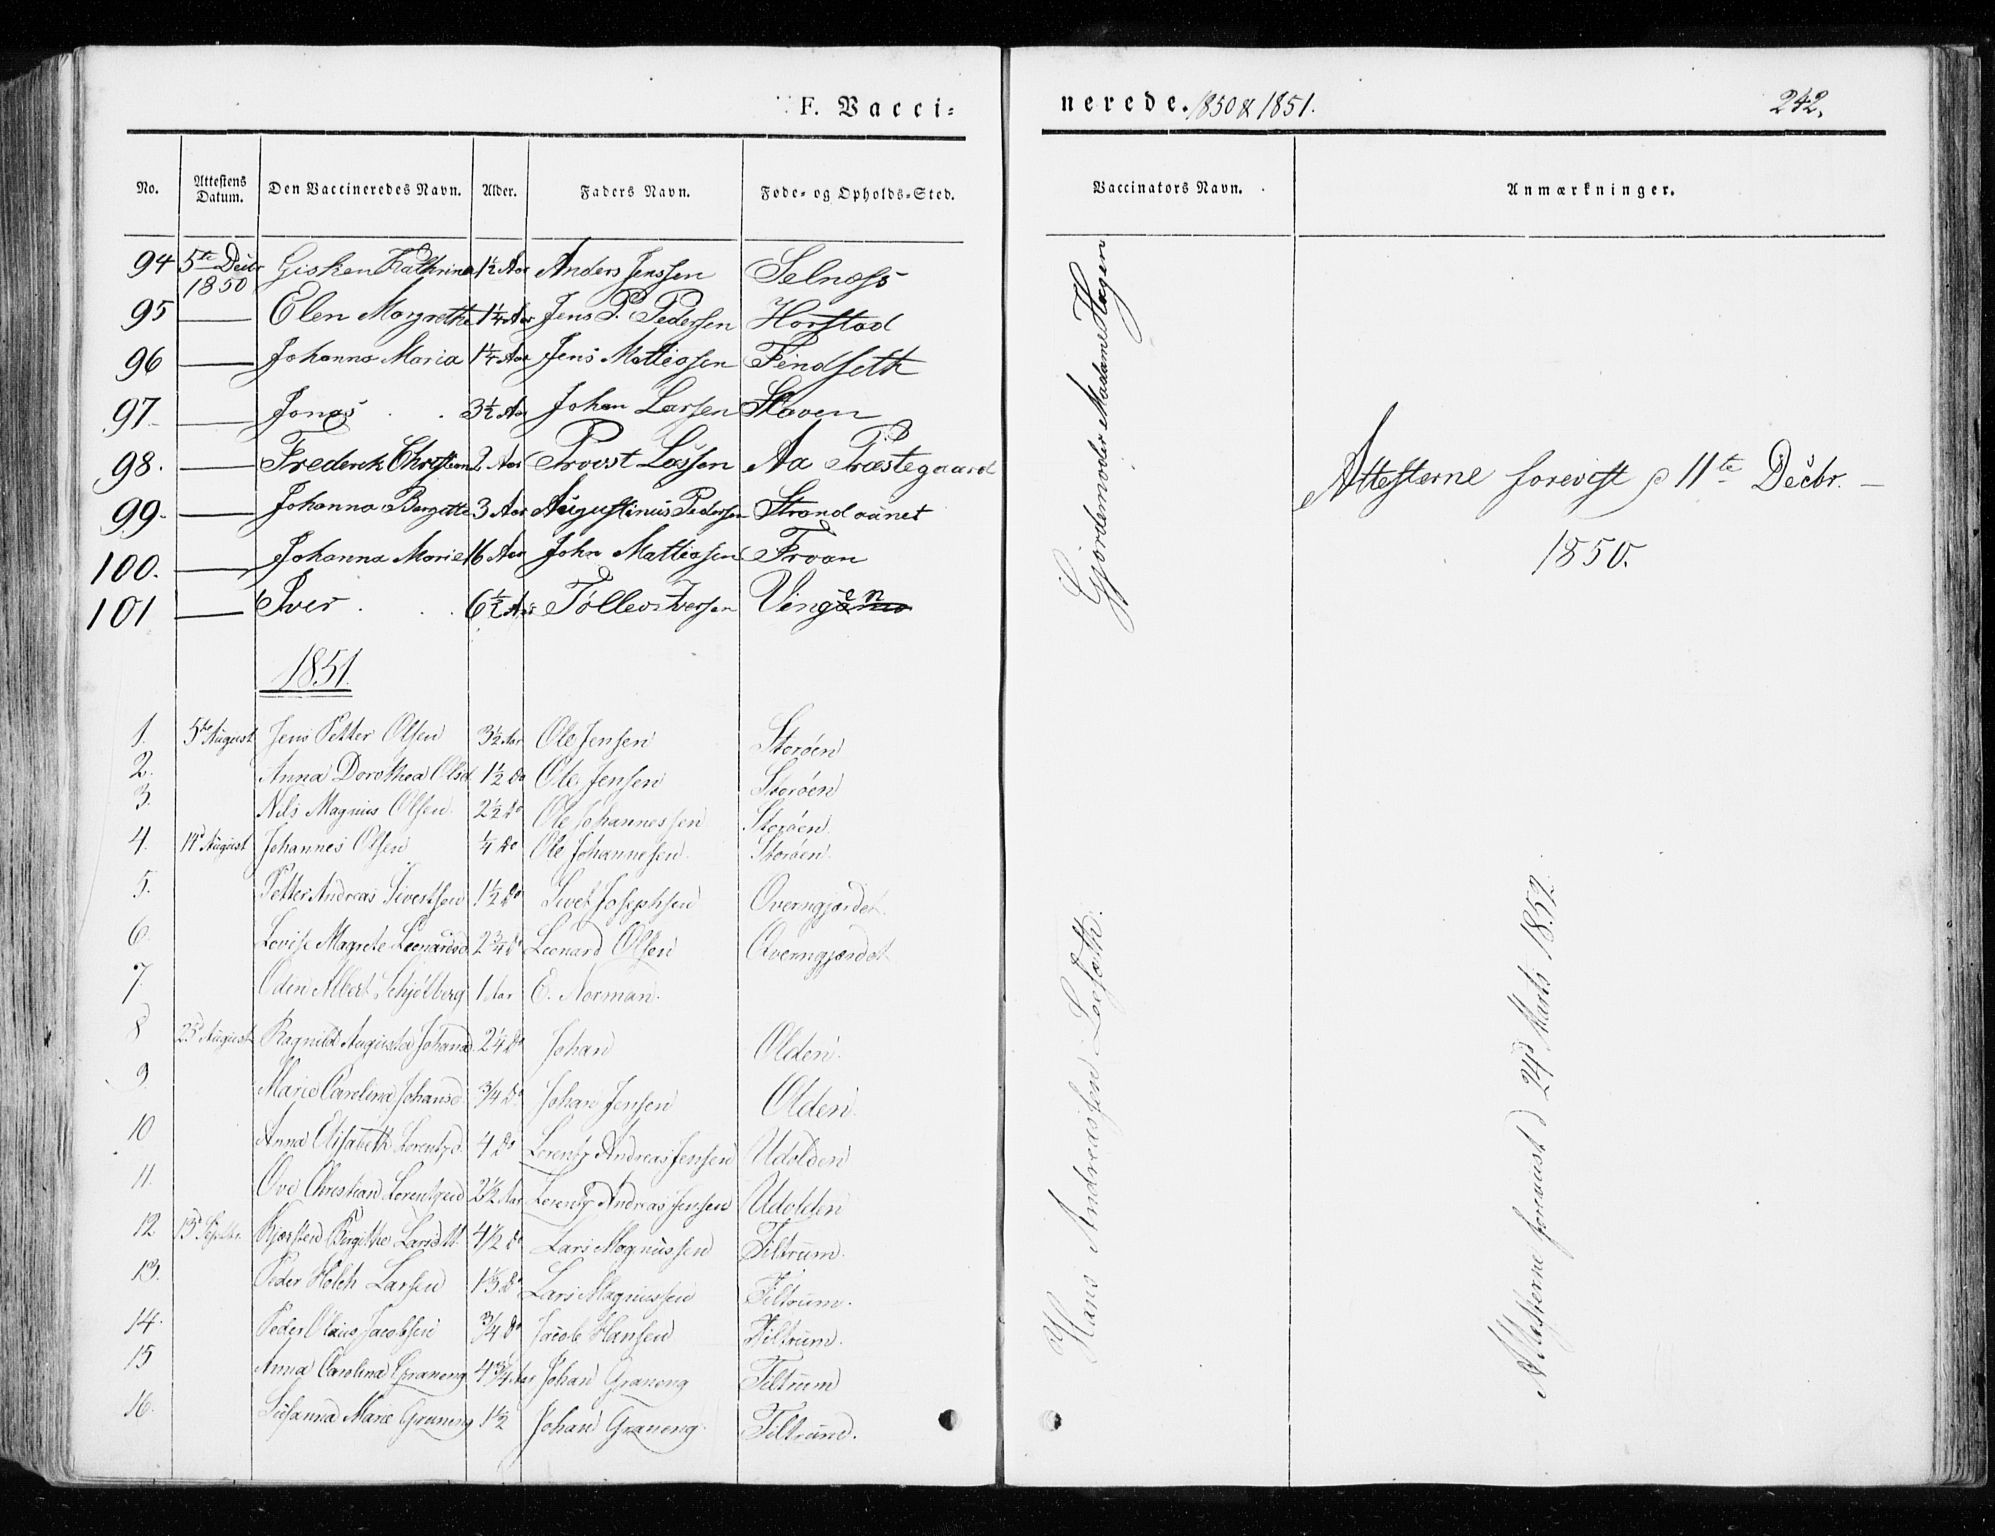 F. Vacci=
nerede. 1850 & 1851.
242.
No. Attestens Datum. Den Vaccineredes Navn. Alder. Faders Navn. Føde- og Opholds-Sted. Vaccinators Navn. Anmærkninger.
94 5te Decbr 1850 Gisken Kathrine 1½ Aar Anders Jenssen Selnæss
95 — Elen Margrethe 1¼ Aar Jens P. Pedersen Harstad
96 — Johanna Maria 1¼ Aar Jens Mattiassen Findseth
97 — Jonas 3½ Aar Johan Larssen
98. — Frederik Christian 2 Aar Provst Lossen Aa Præstegaard
99. — Johanna Bergitte 3 Aar Augustinus Pedersen Strandaunet
100. — Johanna Marie 16 Aar John Mattiassen Froan
101 — Iver 6½ Aar Tollev Iversen Vingen
Gjordemoder Madame Hagen
Attesterne forevist p 11te Decbr. —
1850.
1851.
1. 5te August Jens Petter Olsen 3½ Aar Ole Jensen Storøen
2. Anna Dorothea Olsd 1½ Do Ole Jensen Storøen
3. Nils Magnus Olsen 2½ Do Ole Johannessen Storøen.
4. 14d August Johannes Olsen ¼ Do Ole Johannesen. Storøen.
5. Petter Andreas Sivertsen 1½ Do Sivet Josephsen Overngjærdet.
6. Lovise Magrete Leonardsd. 2¾ Do Leonard Olsen Overngjærdet
7. Odin Albert Schjølberg 1 Aar E. Norman.
8 25d August Ragnild Augusta Johansd 2¼ Do Johan Olden.
9 Marie Carolina Johansd. ¾ Do Johan Jensen Olden.
10 Anna Elisabeth Lorentzd. 4 Do Lorentz Andreas Jensen Udolden
11. Ove Christian Lorentzen 2½ Aar Lorentz Andreas Jensen Udolden
12. 13d Septbr. Kjersten Bergithe Larsdtt. 4½ Do Lars Magnussen Filtrum.
13. Peder Holch Larsen Do Lars Magnussen Filtrum.
14. Peder Olaus Jacobsen ¾ Do Jacob Hansen Filtrum.
15 Anna Carolina Graneng 4¾ Aar Johan Graneng Filtrum
16. Susanna Marie Graneng 1½ Johan Graneng. Filtrum.
Hans Andreassen Lorseth.
Attesterne foreviist d 24d Marts 1852.